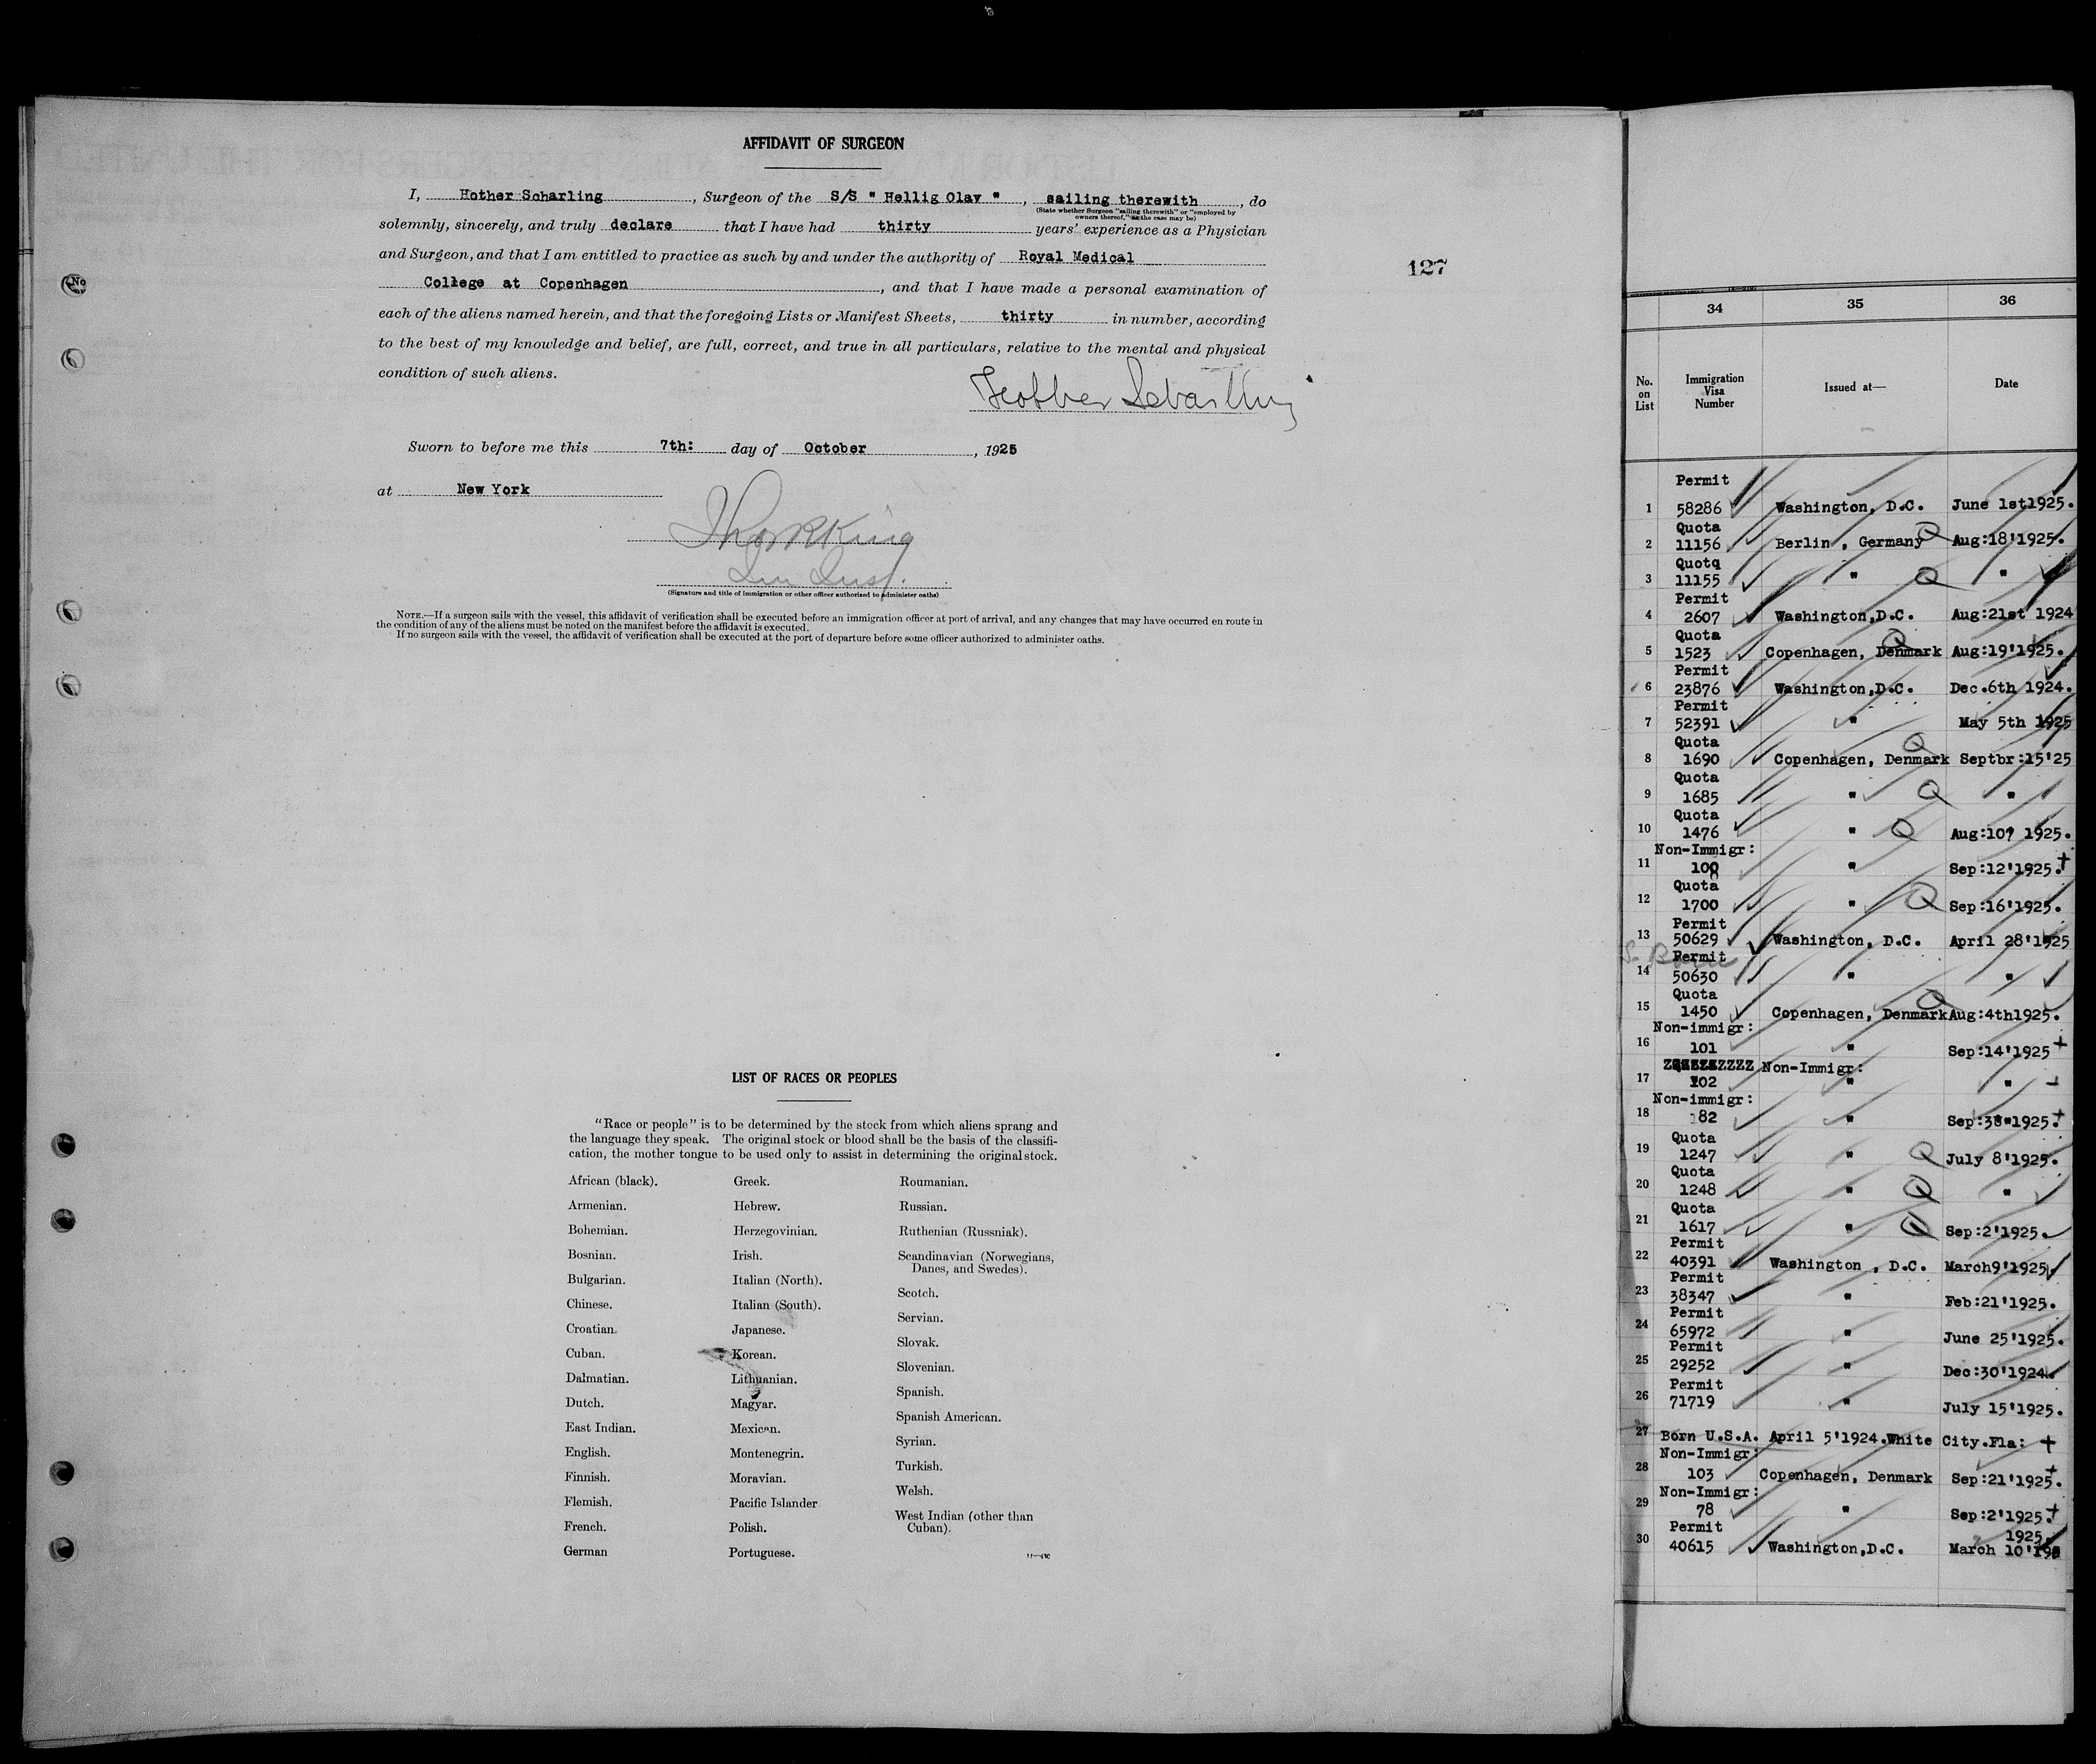 AFFIDAVIT OF SURGEON
I, Hother Scharling, Surgeon of the S/S " Hellig Olav ", sailing therewith, do
(State whether Surgeon "sailing therewith" or "employed by
owners thereof," as the case may be)
solemnly, sincerely, and truly declare that I have had thirty years' experience as a Physician
and Surgeon, and that I am entitled to practice as such by and under the authority of Royal Medical
College at Copenhagen, and that I have made a personal examination of
each of the aliens named herein, and that the foregoing Lists or Manifest Sheets, thirty in number, according
to the best of my knowledge and belief, are full, correct, and true in all particulars, relative to the mental and physical
condition of such aliens.
Hother Scharling
Sworn to before me this 7th: day of October, 1925
at New York
(Signature and title of immigration or other officer authorized to administer oaths)
NOTE.—If a surgeon sails with the vessel, this affidavit of verification shall be executed before an immigration officer at port of arrival, and any changes that may have occurred en route in
the condition of any of the aliens must be noted on the manifest before the affidavit is executed.
If no surgeon sails with the vessel, the affidavit of verification shall be executed at the port of departure before some officer authorized to administer oaths.
127
LIST OF RACES OR PEOPLES
"Race or people" is to be determined by the stock from which aliens sprang and
the language they speak. The original stock or blood shall be the basis of the classifi-
cation, the mother tongue to be used only to assist in determining the original stock.
African (black).
Armenian.
Bohemian.
Bosnian.
Bulgarian.
Chinese.
Croatian.
Cuban.
Dalmatian.
Dutch.
East Indian.
English.
Finnish.
Flemish.
French.
German
Greek.
Hebrew.
Herzegovinian.
Irish.
Italian (North).
Italian (South).
Japanese.
Korean.
Lithuanian.
Magyar.
Mexican.
Montenegrin.
Moravian.
Pacific Islander
Polish.
Portuguese.
Roumanian.
Russian.
Ruthenian (Russniak).
Scandinavian (Norwegians,
Danes, and Swedes).
Scotch.
Servian.
Slovak.
Slovenian.
Spanish.
Spanish American.
Syrian.
Turkish.
Welsh.
West Indian (other than
Cuban).
34 35 36
No. on List Immigration Visa Number Issued at— Date
Permit
1 58286 Washington, D.C. June 1st1925.
Quota
2 11156 Berlin , Germany Q Aug:18'1925.
Quotq
3 11155 " Q "
Permit
4 2607 Washington,D.C. Aug:21st 1924
Quota
5 1523 Copenhagen, Denmark Q Aug:19'1925.
Permit
6 23876 Washington,D.C. Dec.6th 1924.
Permit
7 52391 " May 5th 1925
Quota
8 1690 Copenhagen, Denmark Q Septbr:15'25
Quota
9 1685 " Q "
Quota
10 1476 " Q Aug:10? 1925.
Non-Immigr:
11 100 " Sep:12'1925.+
Quota
12 1700 " Q Sep:16'1925.
Permit
13 50629 Washington, D.C. April 28'1925
Permit
14 50630 " "
Quota
15 1450 Copenhagen, Denmark Q Aug:4th1925.
Non-immigr:
16 101 " Sep:14'1925 +
Non-Immigr:
17 102 " "
Non-immigr:
18 82 " 1925.+
Quota
19 1247 " Q July 8'1925.
Quota
20 1248 " Q "
Quota
21 1617 " Q Sep:2'1925.
Permit
22 40391 Washington , D.C. March9'1925.
Permit
23 38347 " Feb:21'1925.
Permit
24 65972 " June 25'1925.
Permit
25 29252 " Dec:30'1924.
Permit
26 71719 " July 15'1925.
27 Born U.S.A. April 5'1924.White City.Fla: +
Non-Immigr:
28 103 Copenhagen, Denmark Sep:21'1925.+
Non-Immigr:
29 78 " Sep:2'1925.+
Permit 1925.
30 40615 Washington,D.C. March 10'